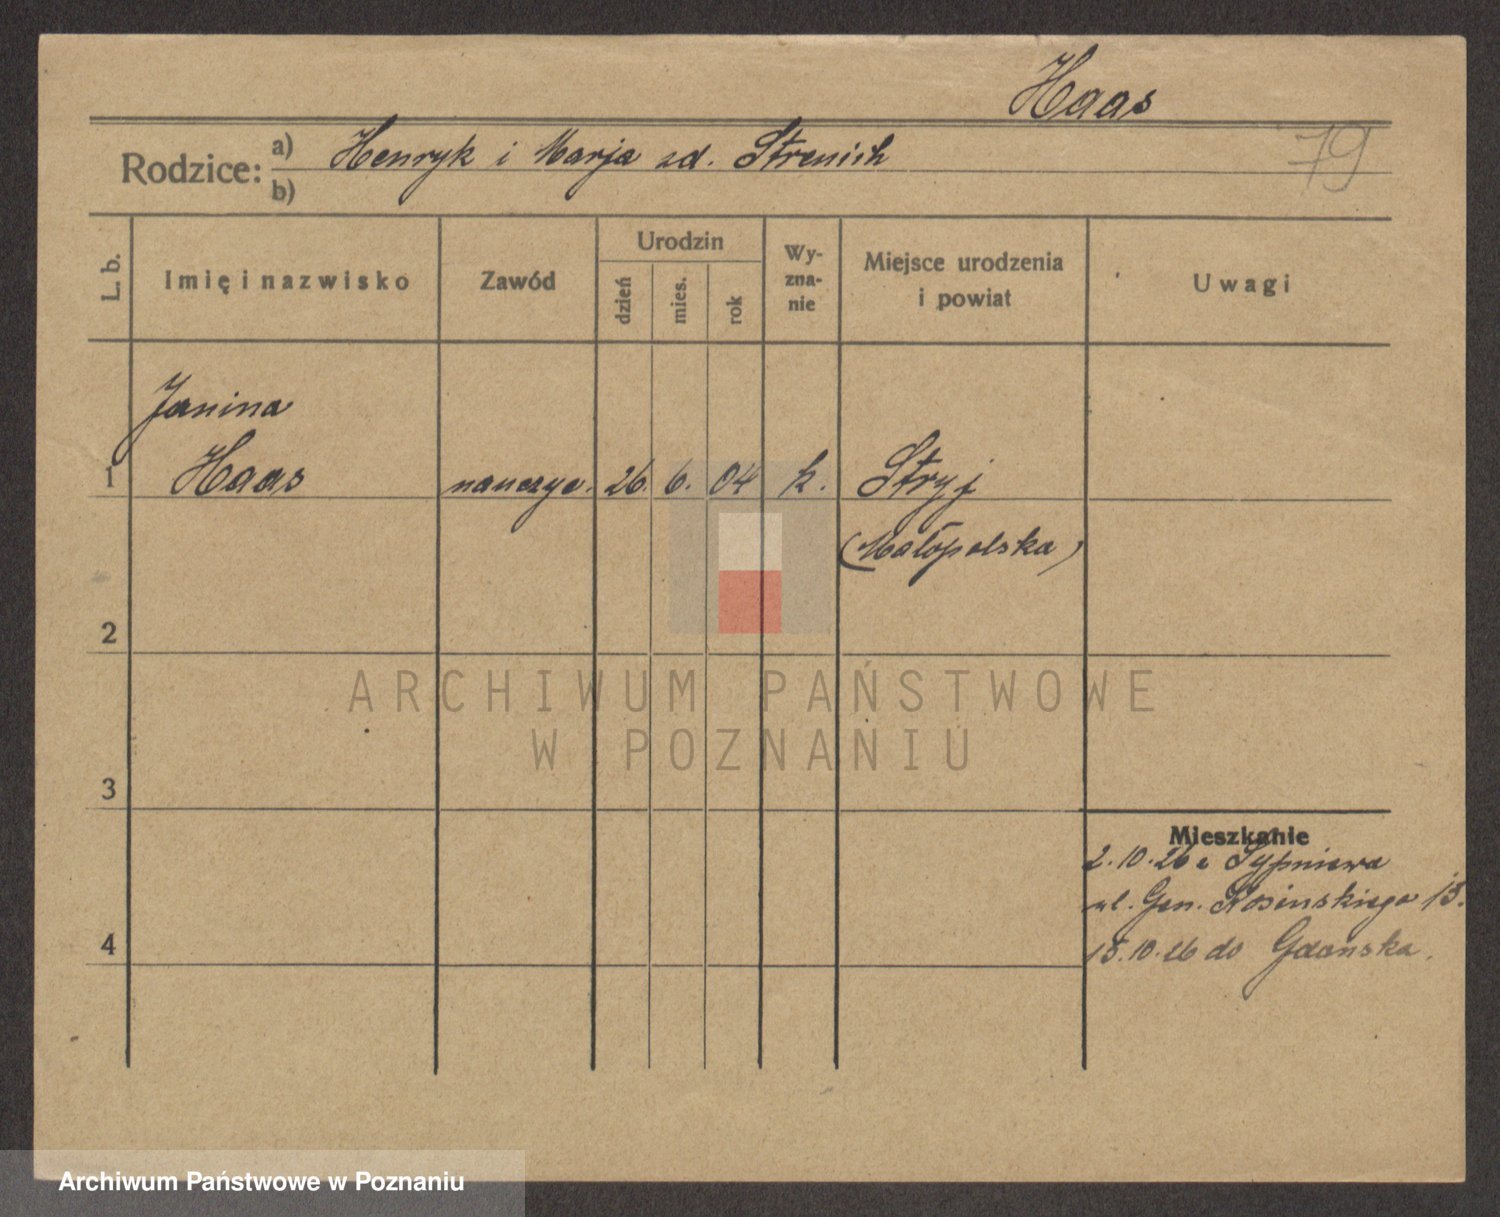 Haas
79
Rodzice: a) Henryk i Marja zd. Strenich
b)
L. b.
Imię i nazwisko
Zawód
Urodzin
dzień
mies.
rok
Wy-
zna-
nie
Miejsce urodzenia
i powiat
Uwagi
Janina
1 Haas nauczyc. 26. 6. 04 k. Stryj
(Małopolska)
2
ARCHIWUM PAŃSTWOWE
W POZNANIU
3
Mieszkanie
2.10.26 z Sypniewa
ul. Gen. Kosińskiego 13.
4
15.10.26 do Gdańska.
Archiwum Państwowe w Poznaniu